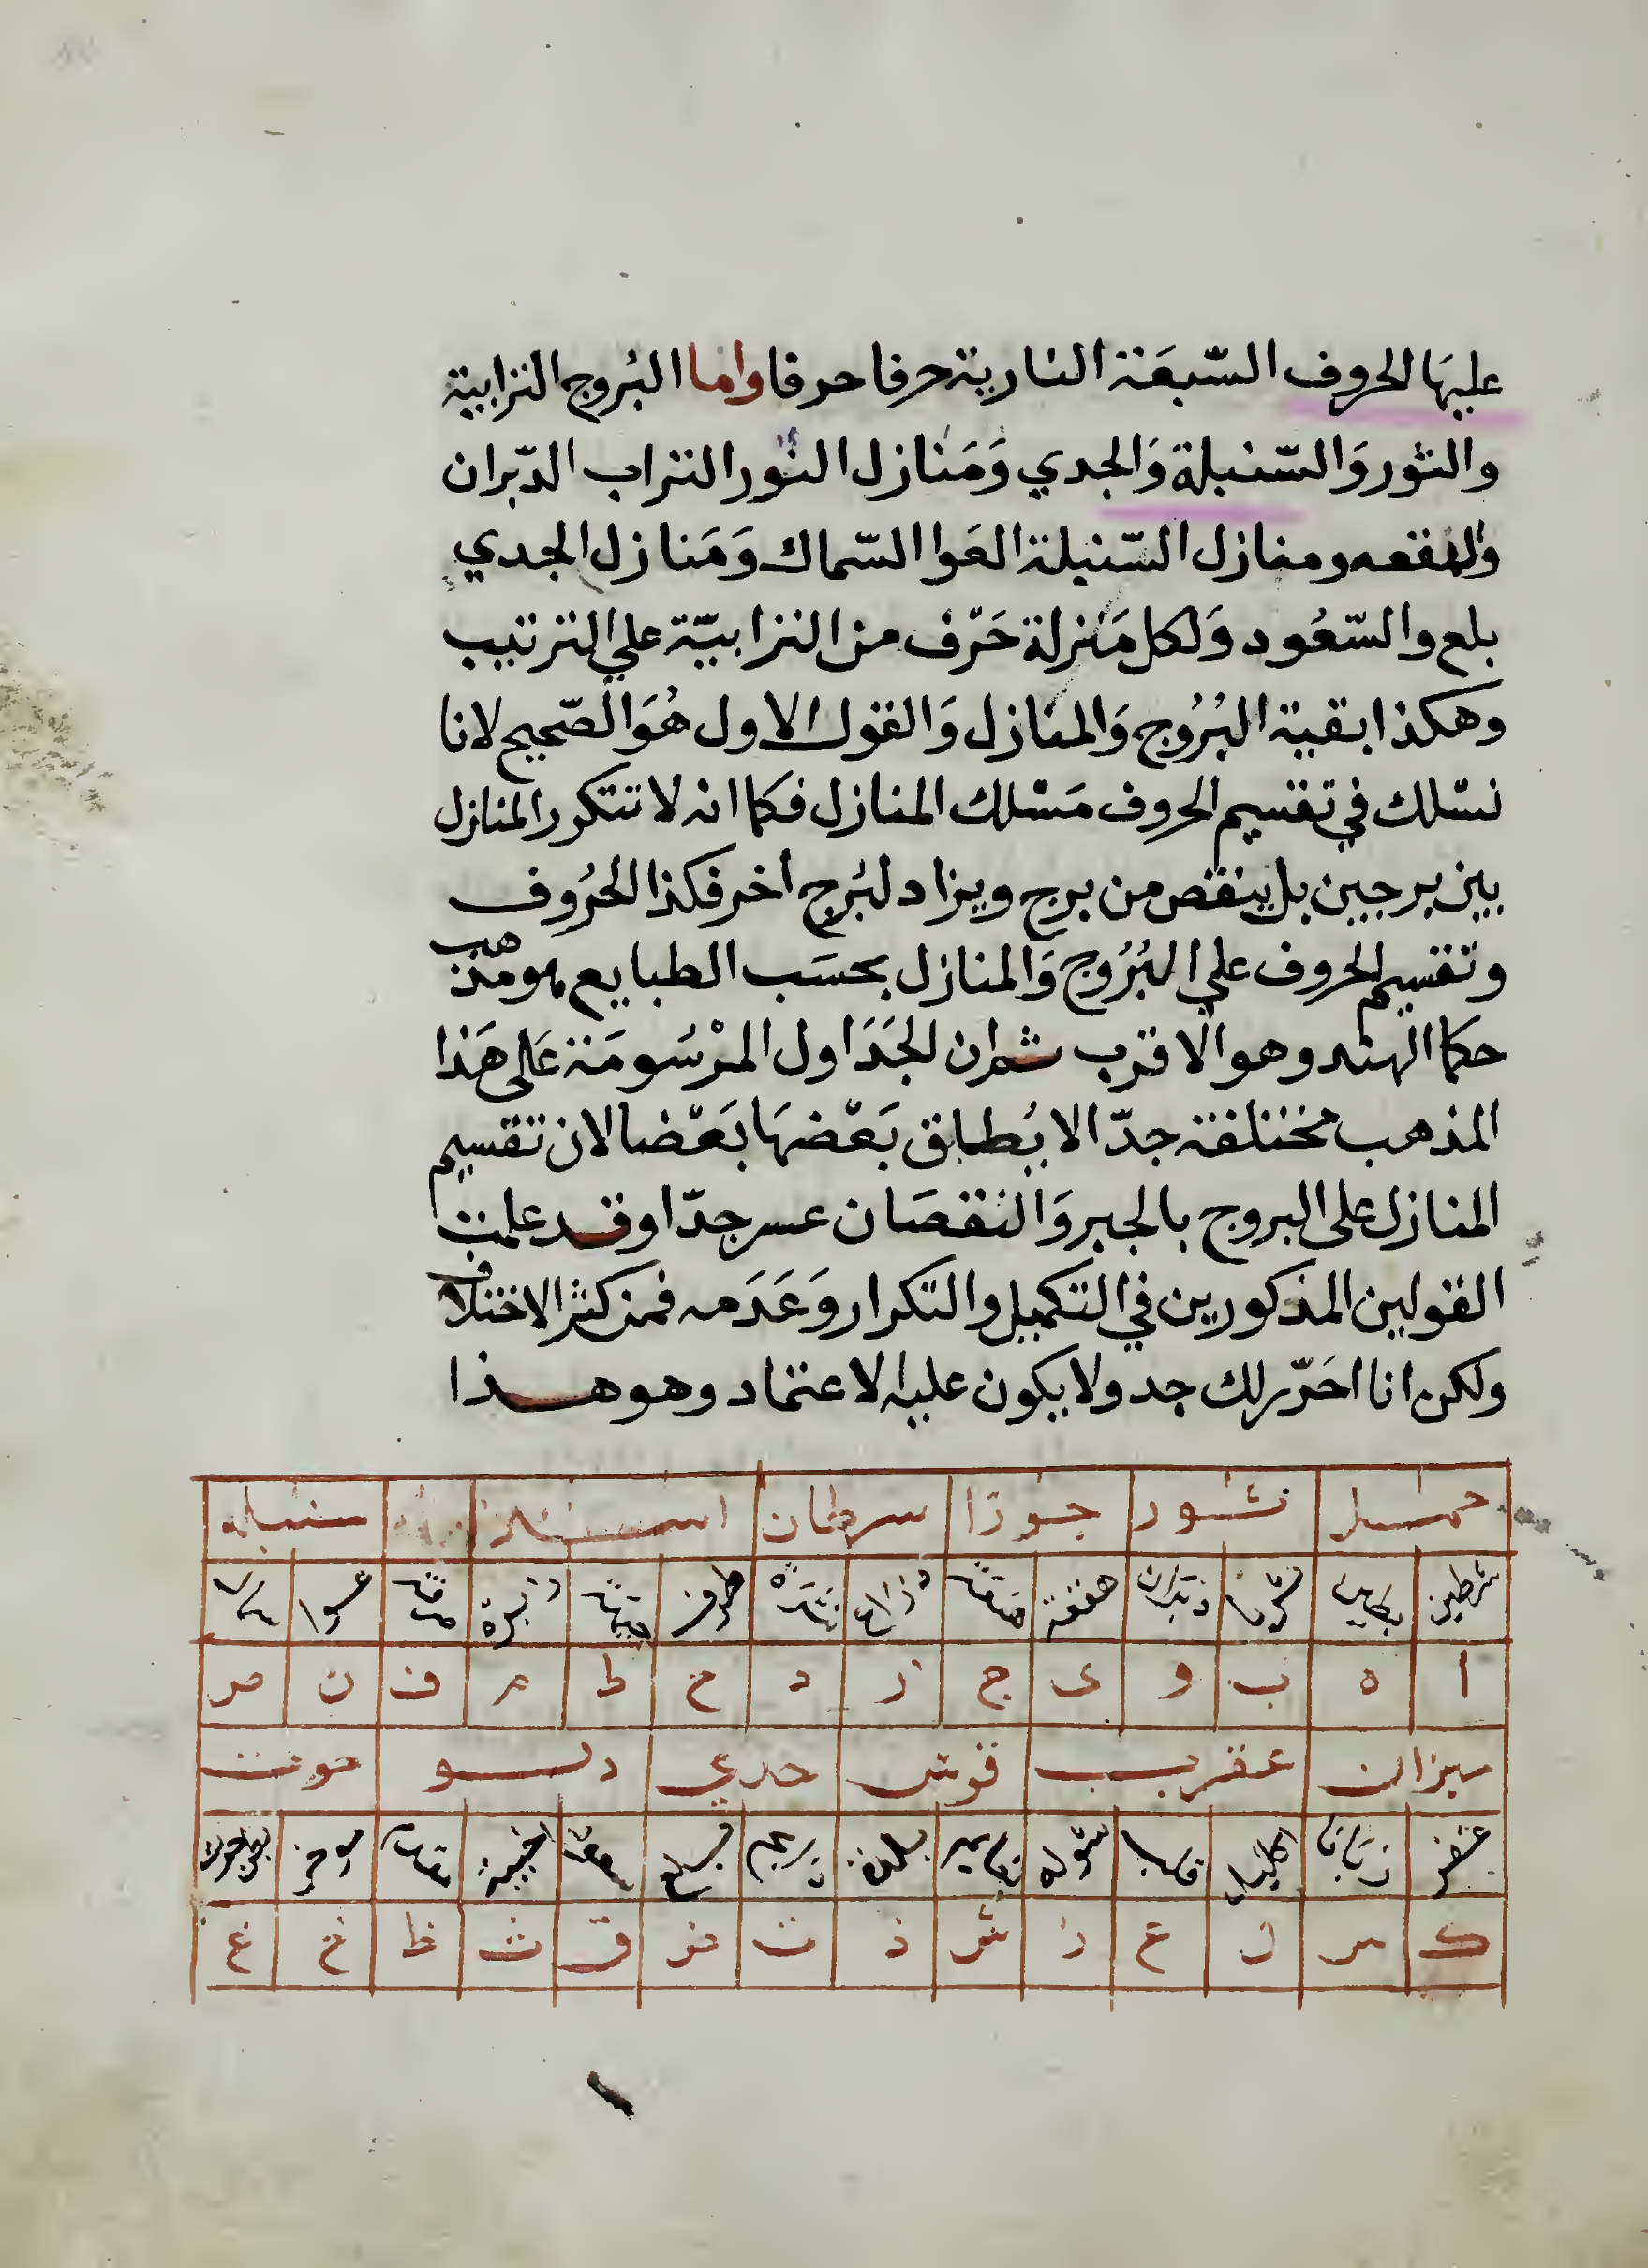 عليهَا الحروف السّبعَة النارية حرفا حرفا واما البُروج الترابية
والثور وَالسّنبلة وَالجدي وَمَنازل الثور التراب الدّبران
والهقعه ومنازل السّنبلة العَوا السّماك وَمَنازل الجدي
بلع والسّعُود وَلكل مَنزلة حَرْف من الترابيّة علي الترتيب
وهكذا بقية البُرُوج وَالمنازل وَالقول الاول هُوَ الصّحيح لانا
نسْلك في تقسيم الحروف مَسْلك المنازل فكما انه لا تتكرر المنازل
بين برجين بل ينقص من برج ويزاد لبُرج اخر فكذا الحُروف
وتقسيم الحروف علي البُرُوج وَالمنازل بحسَب الطبايع هو مذهب
حكما الهند وهو الاقرب ثم ان الجَدَاول المرْسُومَة عَلى هَذا
المذهب مختلفة جدّا لا يُطابق بَعْضهَا بَعْضا لان تقسيم
المنازل على البروج بالجبر وَالنقصَان عسر جدّا وقد علمت
القولين المذكورين في التكميل والتكرار وَعَدَمه فمن كثر الاختلاف
ولكن انا احَرّر لك جدولا يكون عليه الاعتماد وهو هذا
حمل ثور جوزا سرطان اسد سنبله
شرطين بطين ثريا دبران هقعة هنعة ذراع نثره طرف جبهة زبرة صرفة عوا سماك
ا ه ب و ى ج ز د ح ط م ف ن ص
ميزان عقرب قوس جدي دلو حوت
غفر زبانا اكليل قلب شوله نعايم بلده ذابح بلع سعود اخبية مقدم موخر بطن الحوت
ك س ل ع ر ش ذ ت ض ق ث ظ خ غ